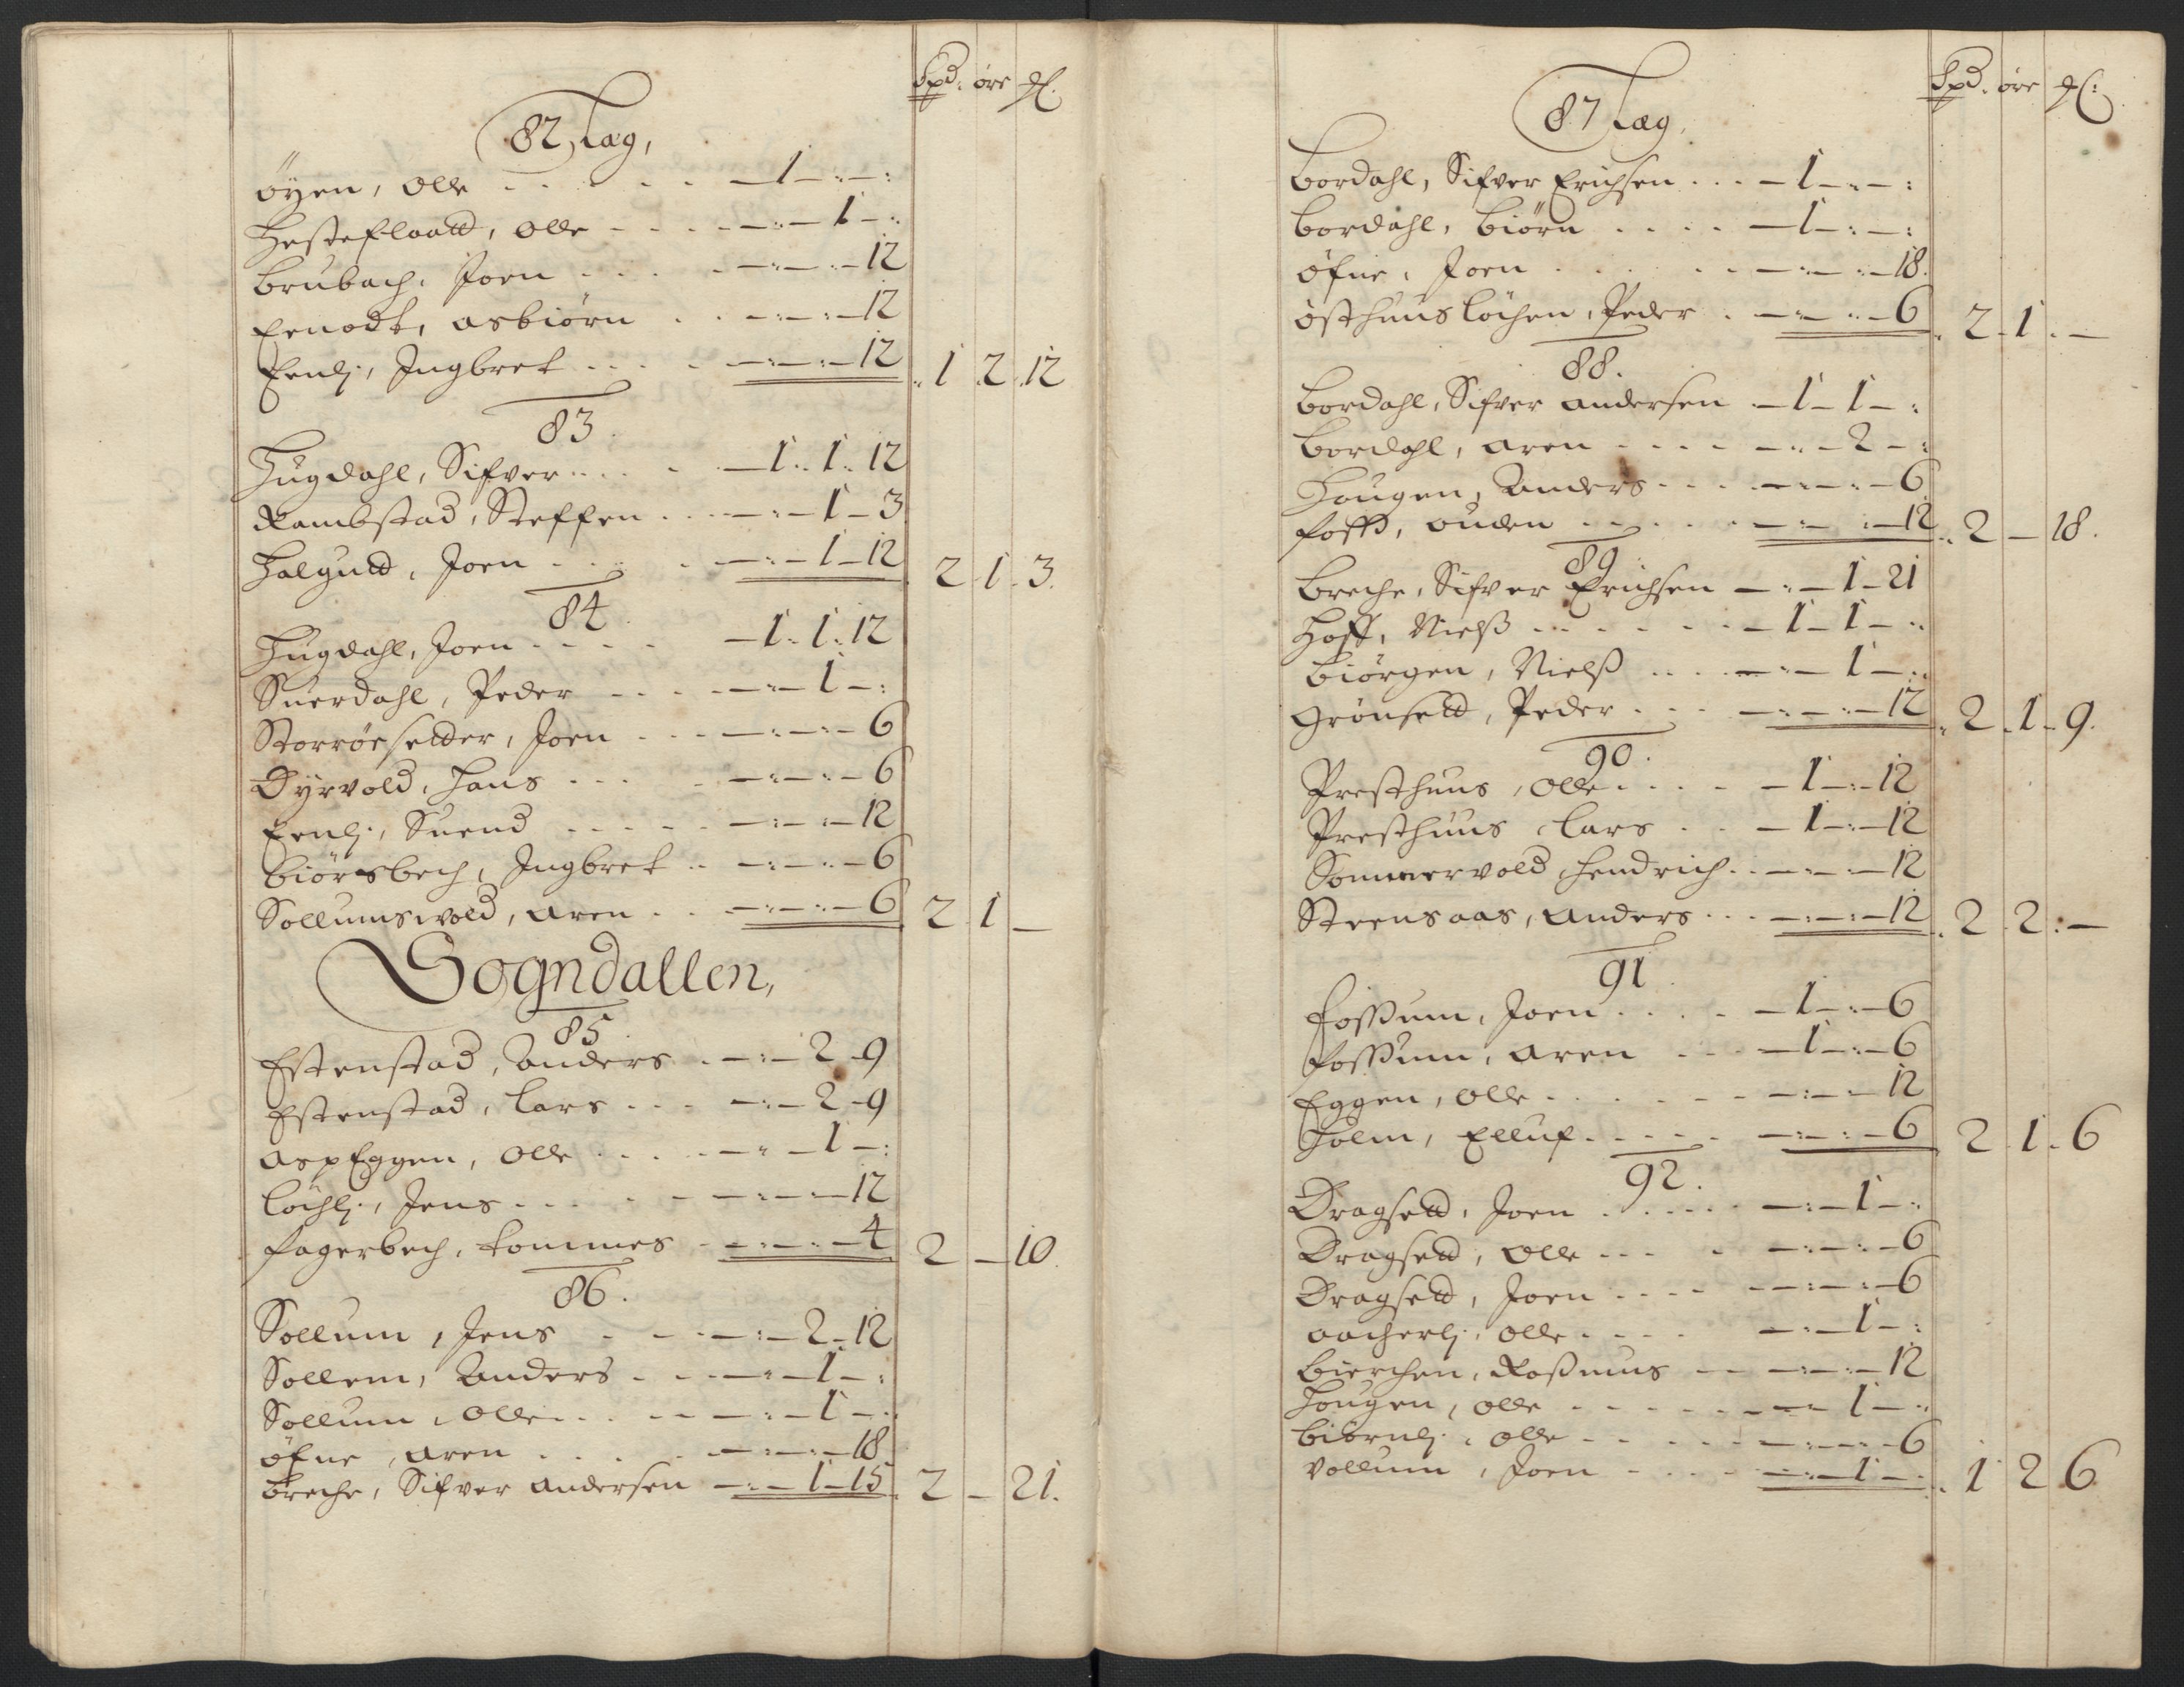 Spd: öre
82 Læg,
öÿen, Olle - 1 - : - :
Hesteflaatt, Olle - : - 1 - :
Brubach, Joen - : - : - 12
Eenodt, Asbiörn - : - : - 12
Eenlj:, Ingbret - : - : - 12 1 2 12
83.
Hugdahl, Sifver - 1 : 1 : 12
Rambstad, Steffen - : - 1 - 3
Halgutt, Joen - : - 1 - 12 2 - 1 - 3.
84.
Hugdahl, Joen - 1 : 1 : 12
Suerdahl, Peder - : - 1 - :
Storröesetter, Joen - : - : - 6
Dÿrvold, Hans - : - : - 6
Eenlj:, Suend - : - : - 12
Biörsbech, Ingbret - : - : - 6
Sollumsvold, Aren - : - : - 6 2 1 -
Sogndallen,
85.
Estenstad, Anders - : - 2 - 9
Estenstad, Lars - : - 2 - 9
AspEggen, Olle - : - 1 - :
Löchlj:, Jens - : - : - 12
Fagerbech, Tommes - : - : - 4 2 - 10.
86.
Sollum, Jens - : - 2 - 12
Sollem, Anders - : - 1 - :
Sollum, Olle - : - 1 - :
öfne, Aren - : - : - 18
Breche, Sifver Andersen - : - 1 - 15 2 - 21.
Spd. öre
87 Læg.
Bordahl, Sifver Erichsen - 1 - : - :
Bordahl, Biörn - 1 - : - :
öfne, Joen - : - : - 18.
östhuuslöchen, Peder - : - : - 6 2 - 1 . -
88.
Bordahl, Sifver Andersen - 1 - 1 - :
Bordahl, Aren - : - 2 - :
Hougen, Anders - : - : - 6
Foss, Ouden - : - : - 12 2 - 18.
89
Breche, Sifver Erichsen - : - 1 - 21
Hoff, Nielß - 1 - 1 - :
Biörgen, Nielß - : - 1 - :
Grönsett, Peder - : - : - 12 2 - 1 - 9.
90.
Presthuus, Olle - 1 - : - 12
Presthuus, Lars - 1 - : - 12
Sommervold, Hendrich - : - : - 12
Steensaas, Anders - : - : - 12 2 2 : -
91.
Fossum, Joen - 1 - : - 6
Fossum, Aren - 1 - : - 6
Eggen, Olle - : - : - 12
Holm, Elluf - : - : - 6 2 1 - 6
92.
Dragsett, Joen - : - 1 - :
Dragsett, Olle - : - : - 6
Dragsett, Joen - : - : - 6
Aacherlj:, Olle - : - 1 - :
Bierchen, Raßmus - : - : - 12
Hougen, Olle - : - 1 - :
Biörnlj:, Olle - : - : - 6
Vollum, Joen - : - 1 - : 1 2 6